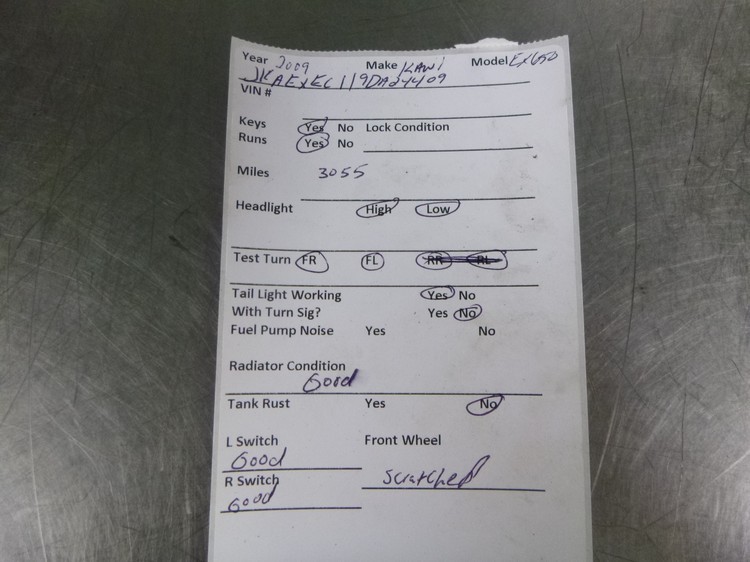 Year 2009 Make KAWI Model EX650
JKAEXEC119DA24409
VIN #
Keys Yes No Lock Condition
Runs Yes No
Miles 3055
Headlight High Low
Test Turn FR FL RR RL
Tail Light Working Yes No
With Turn Sig? Yes No
Fuel Pump Noise Yes No
Radiator Condition
Good
Tank Rust Yes No
L Switch Front Wheel
Good
Scratched
R Switch
Good